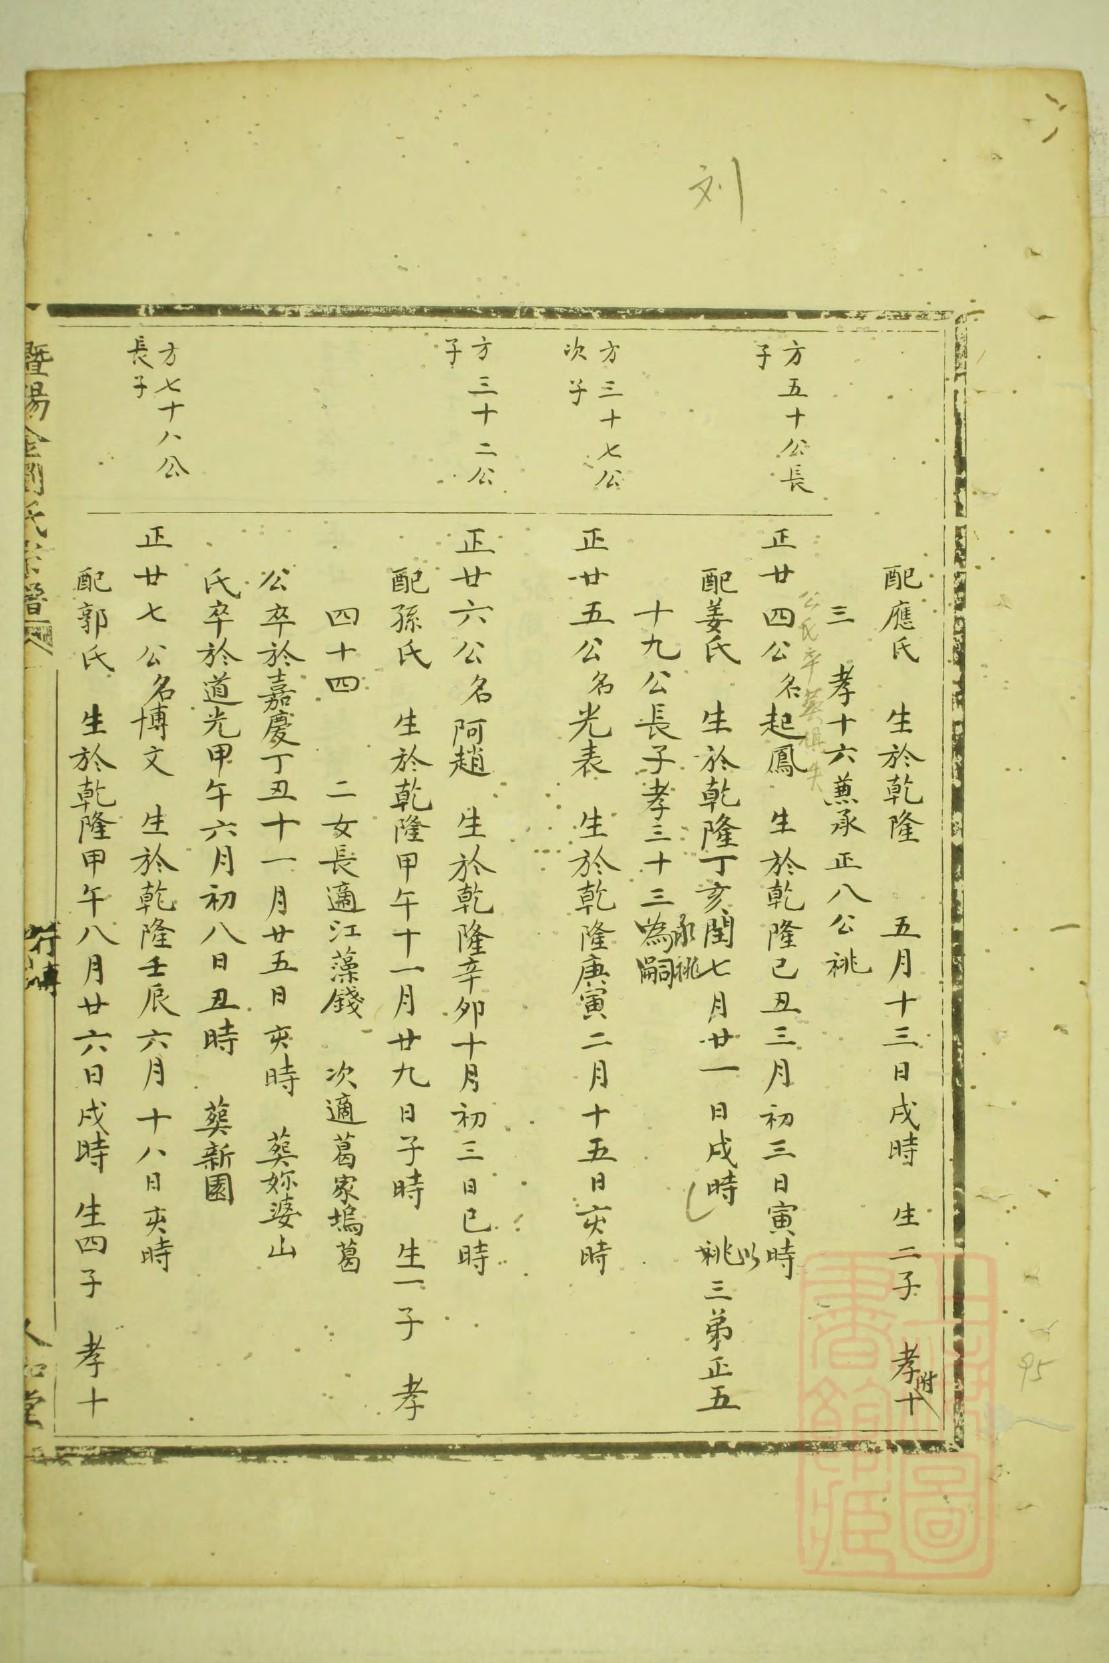 刘
配應氏 生於乾隆 五月十三日戌時 生二子 孝十
附
三 孝十六兼承正八公祧
方五十公長
子
正廿四公名起鳳 生於乾隆己丑三月初三日寅時
公氏卒葬俱失
配姜氏 生於乾隆丁亥閏七月廿一日戌時 祧三弟正五
以
十九公長子孝三十三為嗣
承祧
方三十七公
次子
正廿五公名光表 生於乾隆庚寅二月十五日亥時
方三十二公
子
正廿六公名阿趙 生於乾隆辛卯十月初三日巳時
配孫氏 生於乾隆甲午十一月廿九日子時 生一子 孝
四十四 二女長適江藻錢 次適葛家塢葛
公卒於嘉慶丁丑十一月廿五日亥時 葬妳婆山
氏卒於道光甲午六月初八日丑時 葬新園
方七十八公
長子
正廿七公名博文 生於乾隆壬辰六月十八日亥時
配郭氏 生於乾隆甲午八月廿六日戌時 生四子 孝十
暨陽金澗劉氏宗譜
行傳
人和堂
95
上海圖書館藏